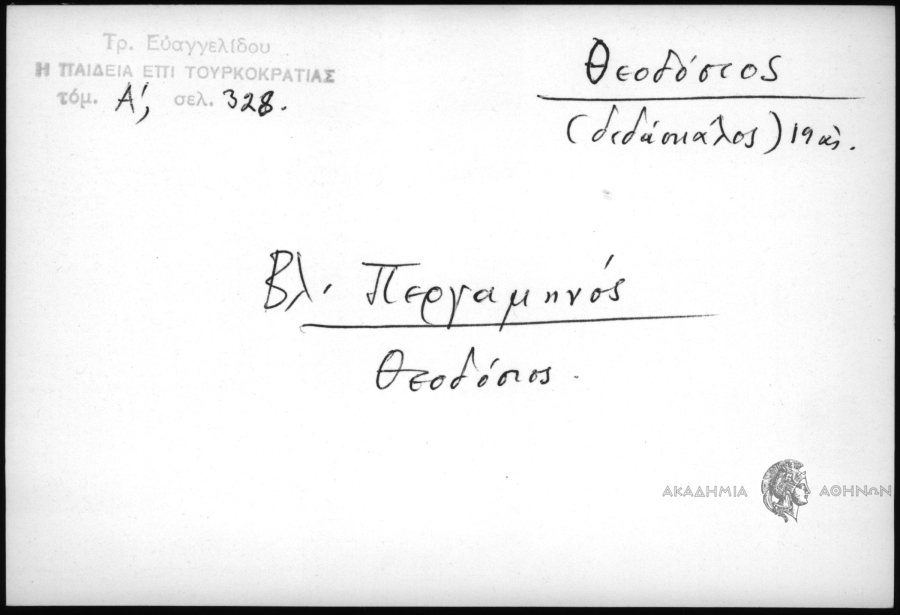 Τρ. Εὐαγγελίδου
Η ΠΑΙΔΕΙΑ ΕΠΙ ΤΟΥΡΚΟΚΡΑΤΙΑΣ
τόμ. Α', σελ. 328.
Θεοδόσιος
(διδάσκαλος) 19 αἰ.
Βλ. Περγαμηνός
Θεοδόσιος.
ΑΚΑΔΗΜΙΑ ΑΘΗΝΩΝ